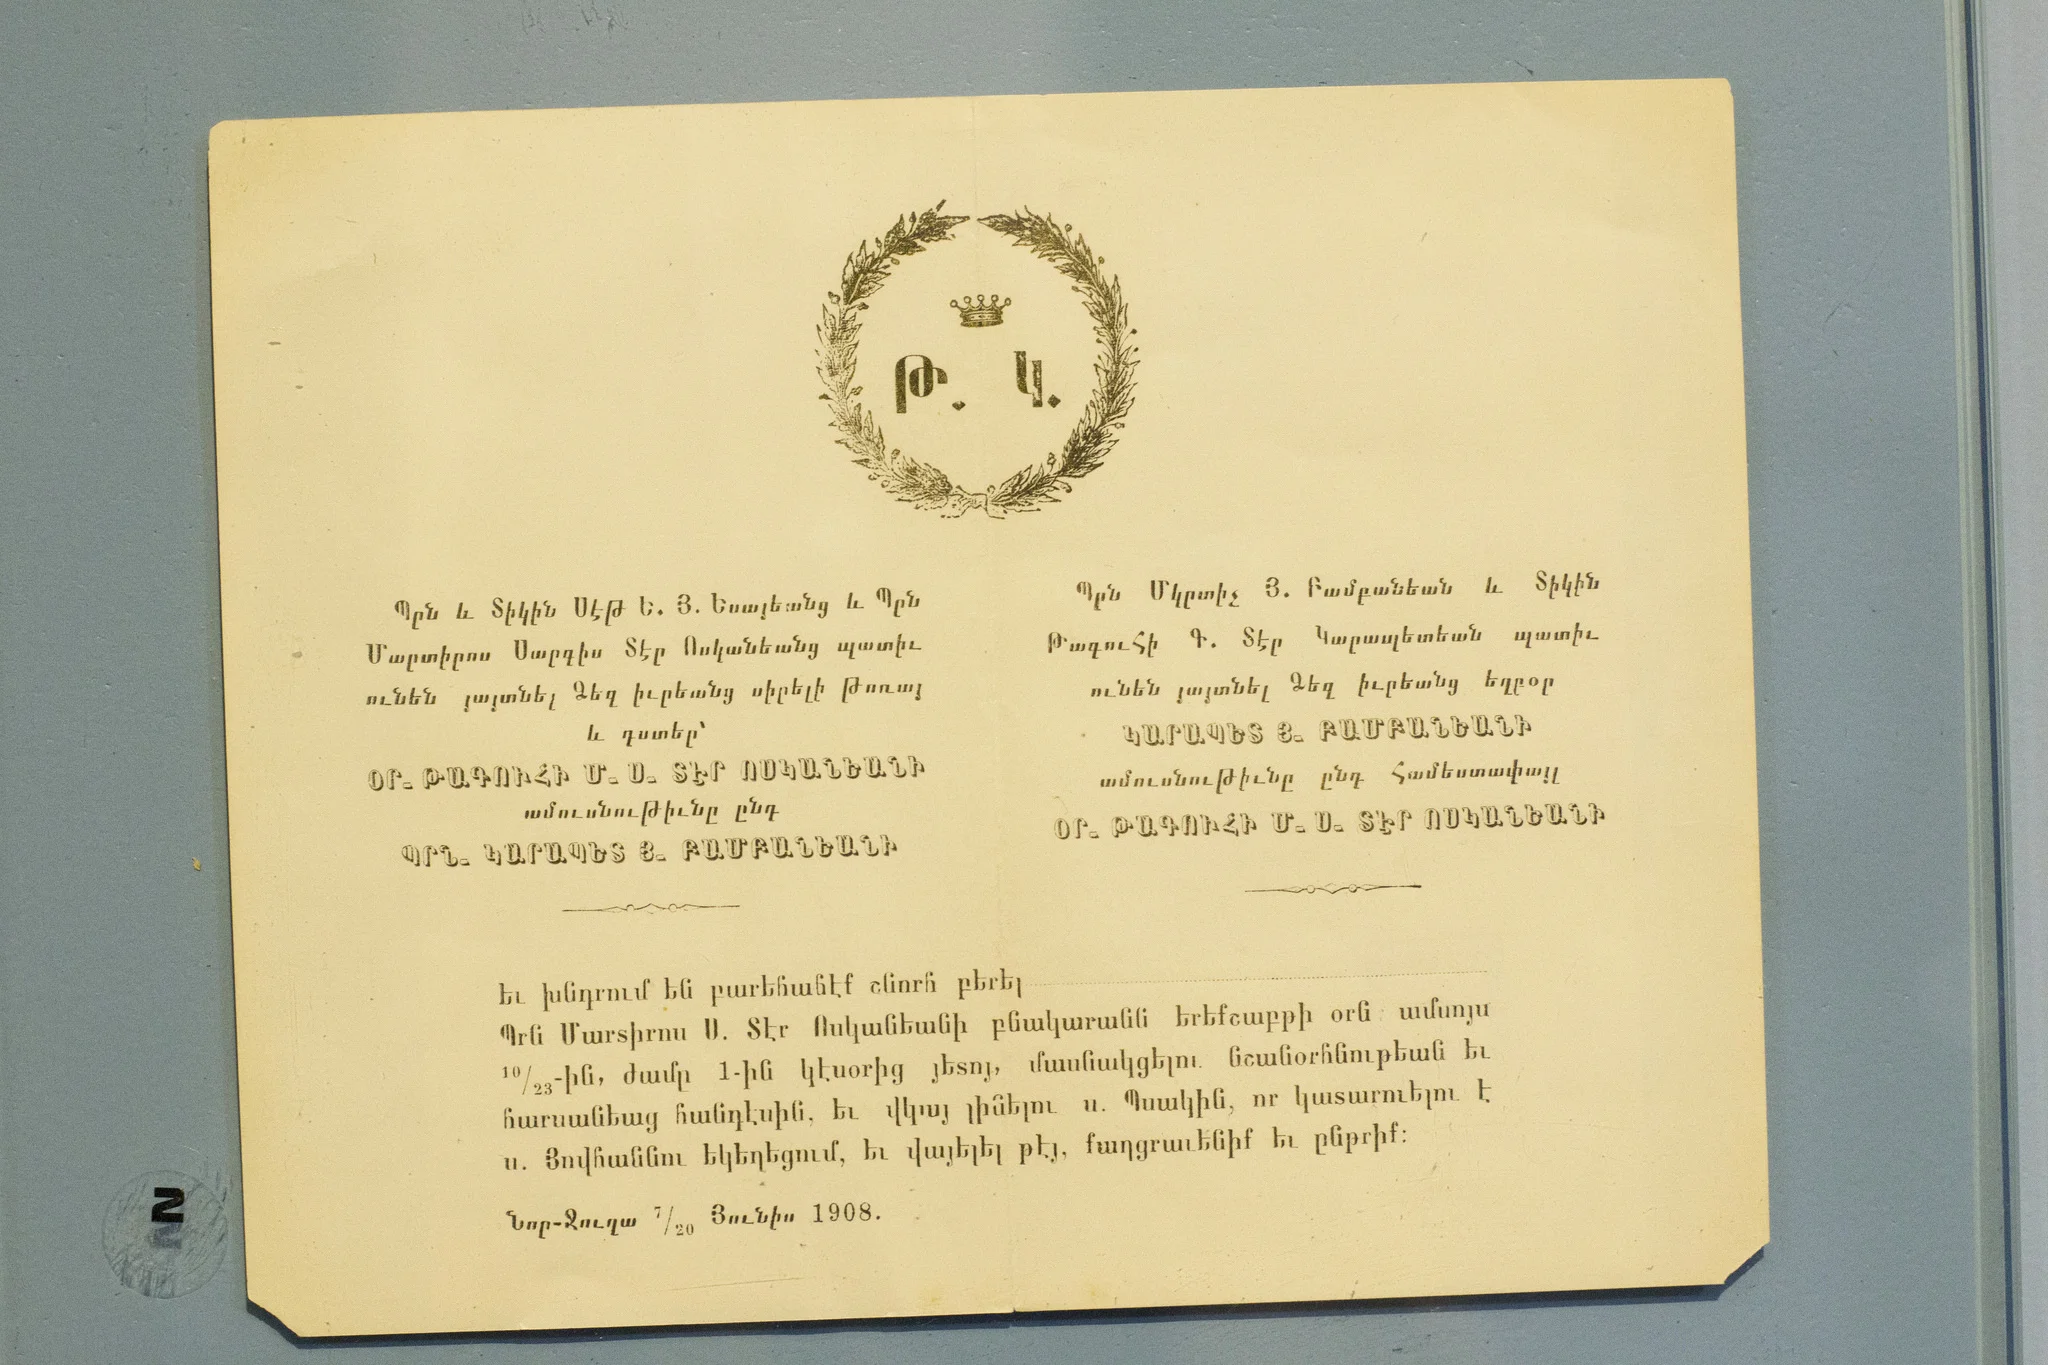 Թ. Կ.
Պրն և Տիկին Սէթ Ե. Յ. Եսայեանց և Պրն
Մարտիրոս Սարգիս Տէր Ոսկանեանց պատիւ
ունեն յայտնել Ձեզ իւրեանց սիրելի թոռայ
և դստեր՝
ՕՐ. ԹԱԳՈՒՀԻ Մ. Ս. ՏԷՐ ՈՍԿԱՆԵԱՆԻ
ամուսնութիւնը ընդ
ՊՐՆ. ԿԱՐԱՊԵՏ Յ. ԲԱՄԲԱՆԵԱՆԻ
Պրն Մկրտիչ Յ. Բամբանեան և Տիկին
Թագուհի Գ. Տէր Կարապետեան պատիւ
ունեն յայտնել Ձեզ իւրեանց եղբօր
ԿԱՐԱՊԵՏ Յ. ԲԱՄԲԱՆԵԱՆԻ
ամուսնութիւնը ընդ Համեստափայլ
ՕՐ. ԹԱԳՈՒՀԻ Մ. Ս. ՏԷՐ ՈՍԿԱՆԵԱՆԻ
եւ խնդրում են բարեհաճէք շնորհ բերել
Պրն Մարտիրոս Ս. Տէր Ոսկանեանի բնակարանն երեքշաբթի օրն ամսոյս
10/23-ին, ժամը 1-ին կէսօրից յետոյ, մասնակցելու նշանօրհնութեան եւ
հարսանեաց հանդէսին, եւ վկայ լինելու ս. Պսակին, որ կատարուելու է
ս. Յովհաննու եկեղեցում, եւ վայելել թէյ, քաղցրաւենիք եւ ընթրիք:
Նոր-Ջուղա 7/20 Յունիս 1908.
2